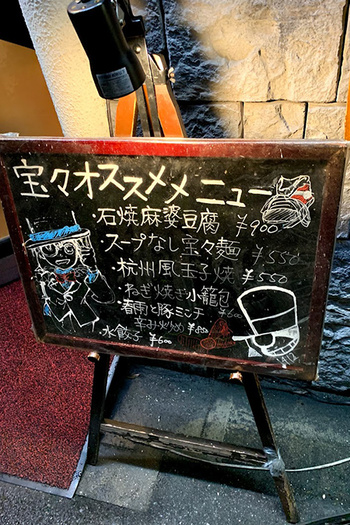 宝々オススメメニュー
・石焼麻婆豆腐 ¥900
・スープなし宝々麺 ¥550
・杭州風玉子焼 ¥550
・ねぎ焼き小籠包 ¥600
・春雨と豚ミンチ
辛み炒め ¥850
・水餃子 ¥600